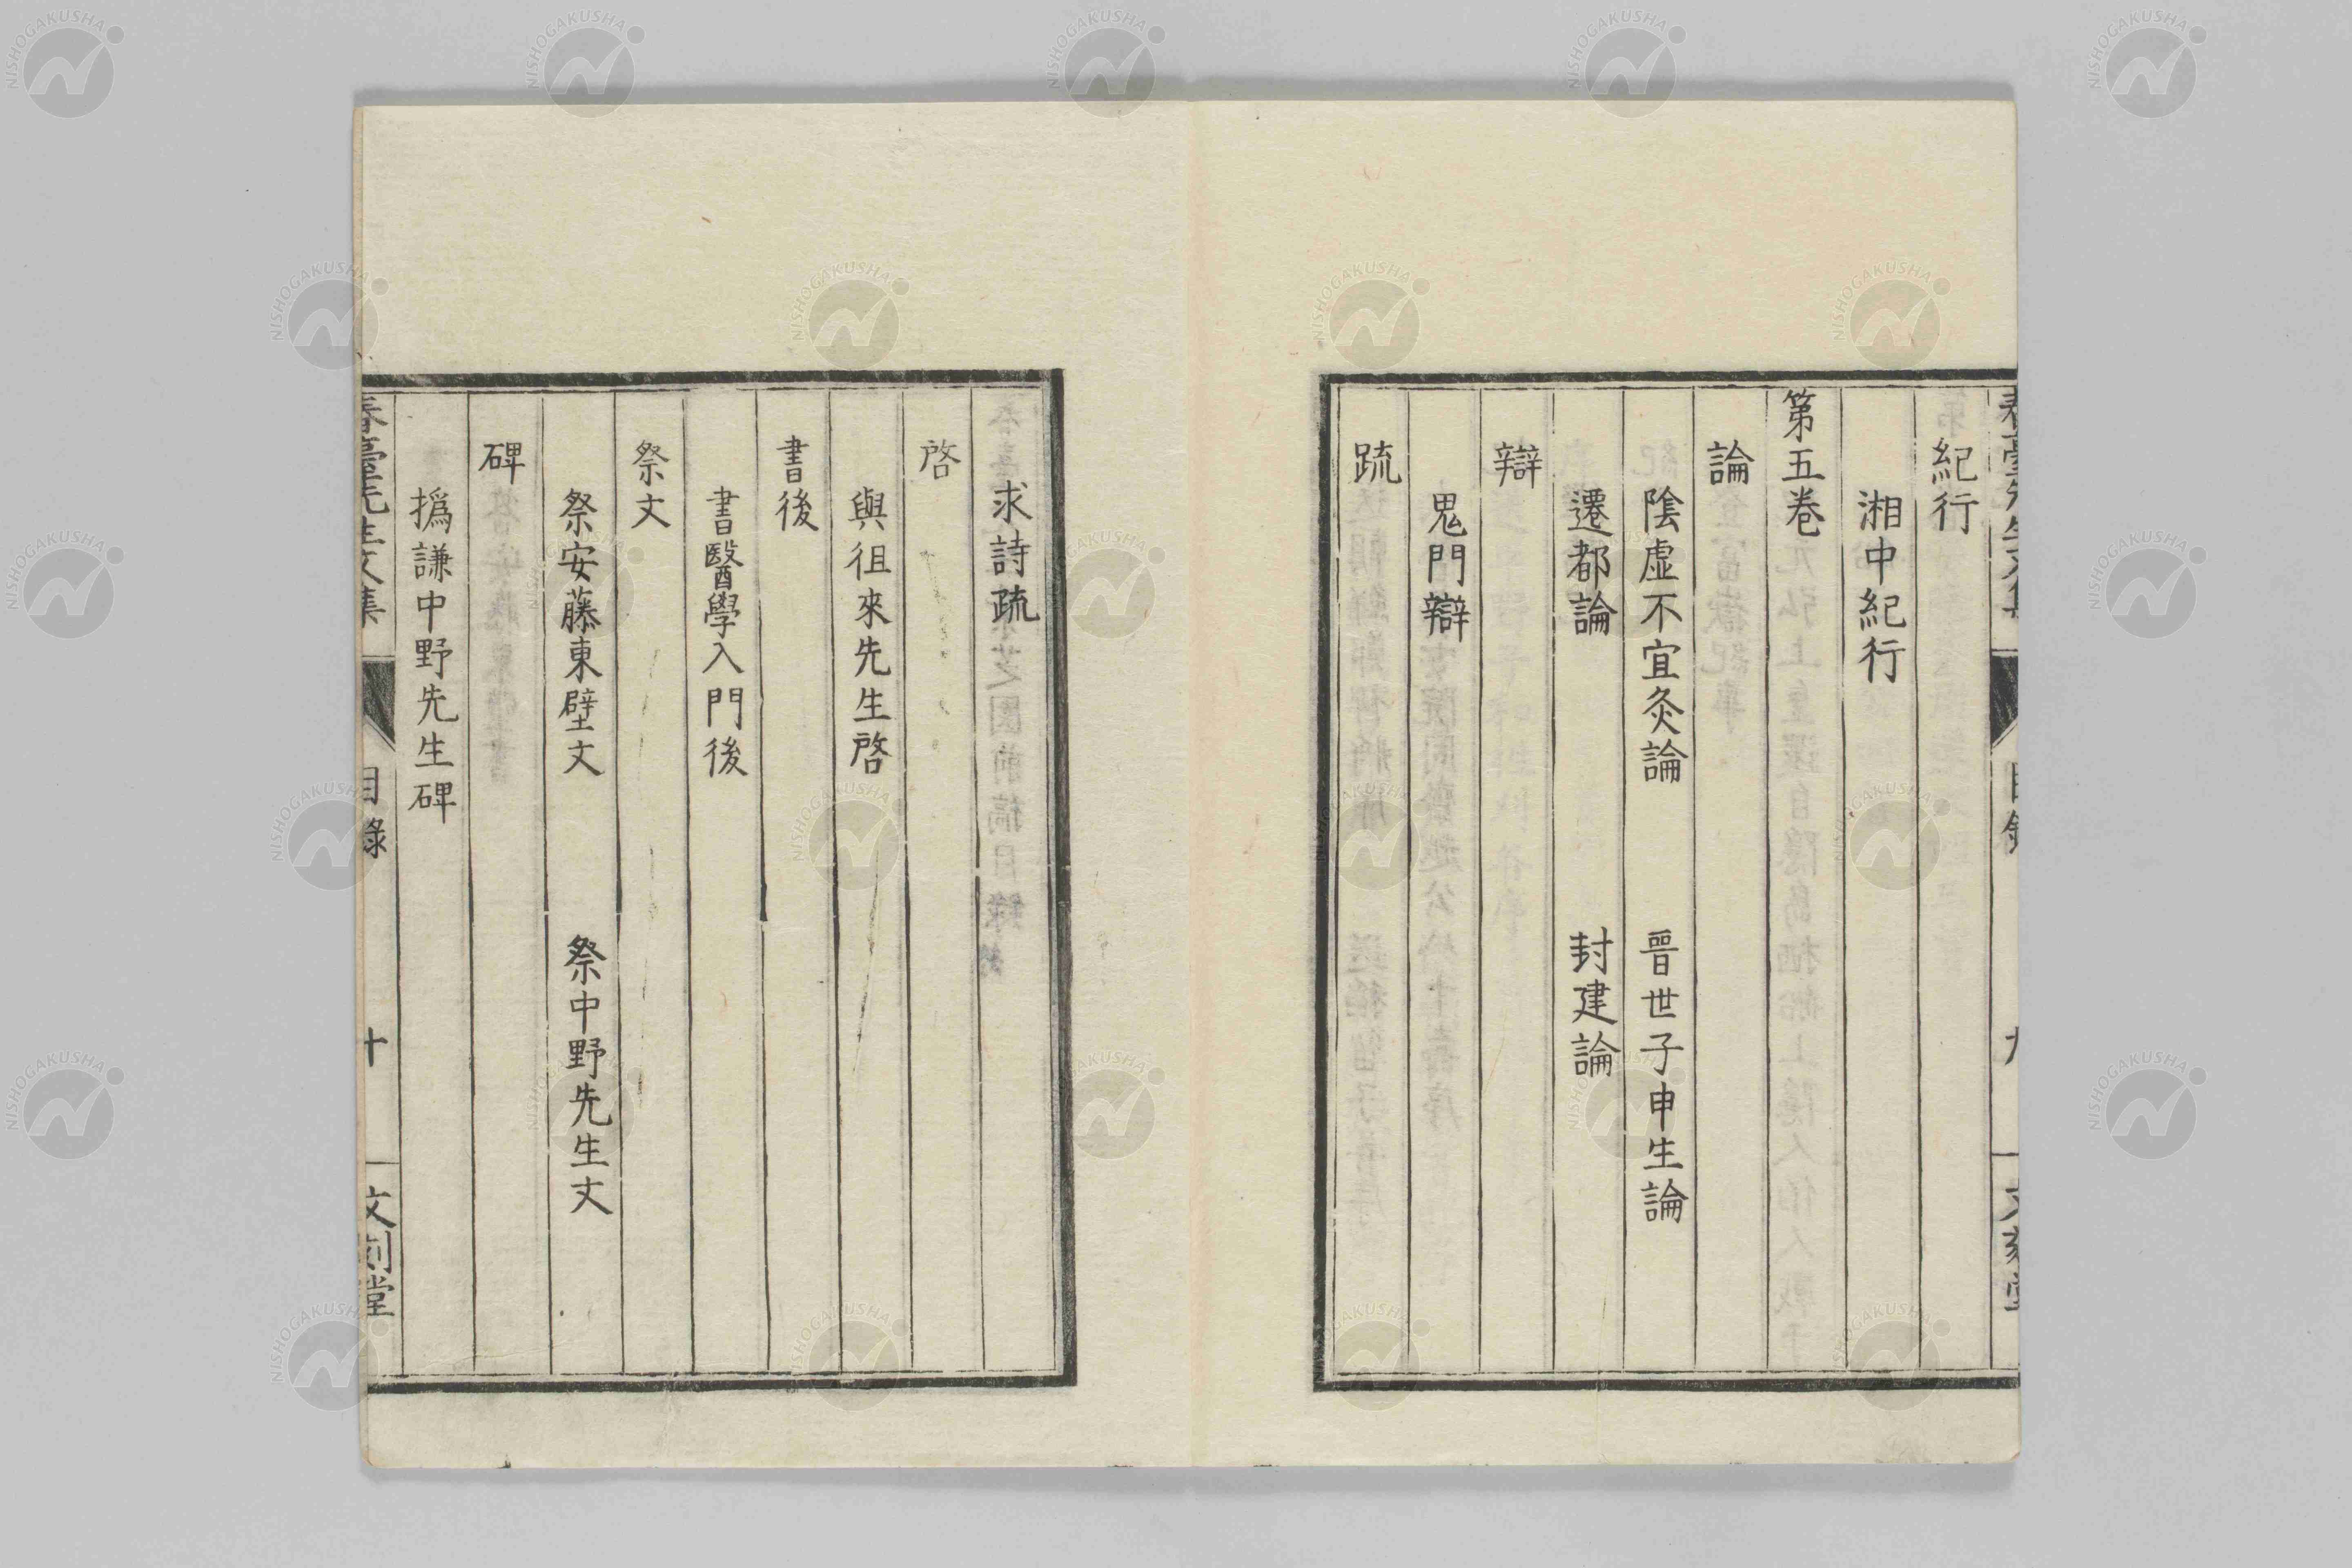 紀行
湘中紀行
第五卷
論
陰虛不宜灸論　晉世子申生論
遷都論　封建論
辯
鬼門辯
疏
求詩疏
啓
與徂來先生啓
書後
書醫學入門後
祭文
祭安藤東壁文　祭中野先生文
碑
撝謙中野先生碑
春臺先生文集　目錄　十　文刻堂
NISHOGAKUSHA